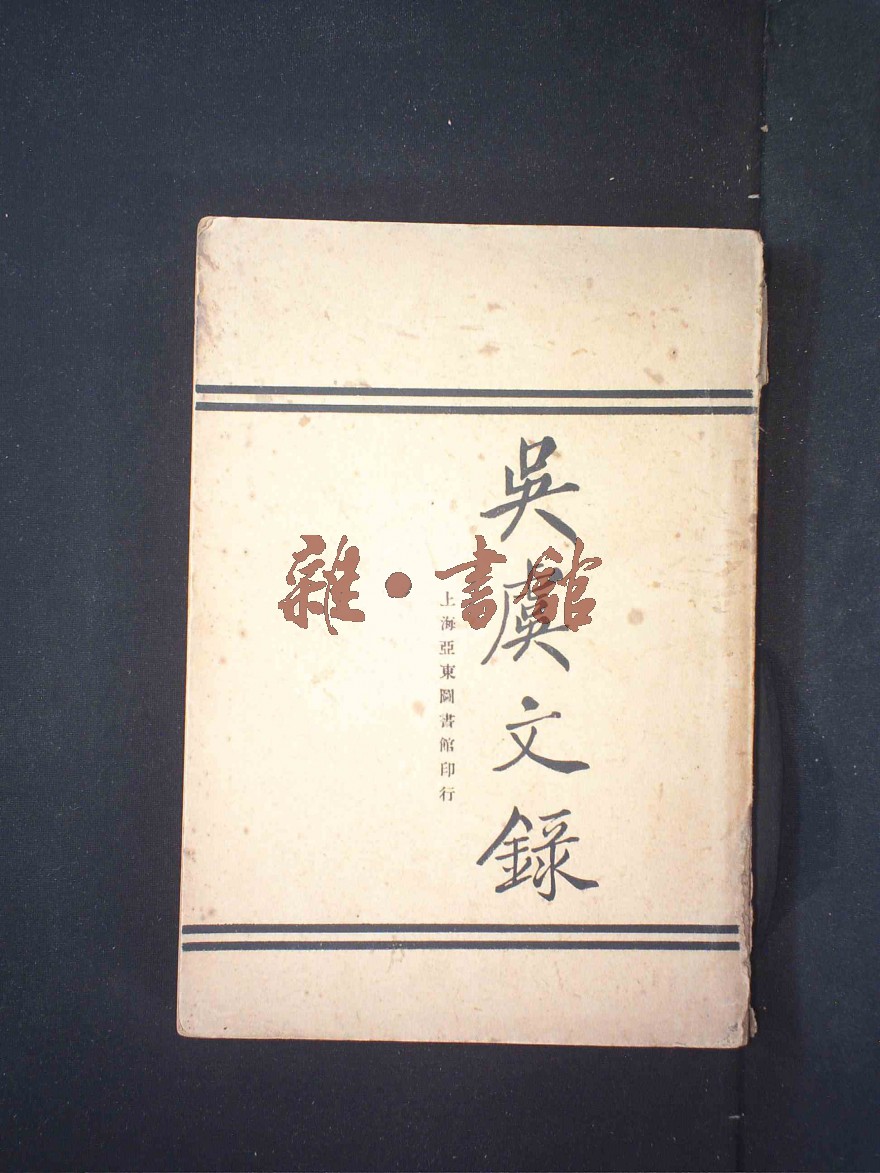 吳虞文錄
上海亞東圖書館印行
雜·書館